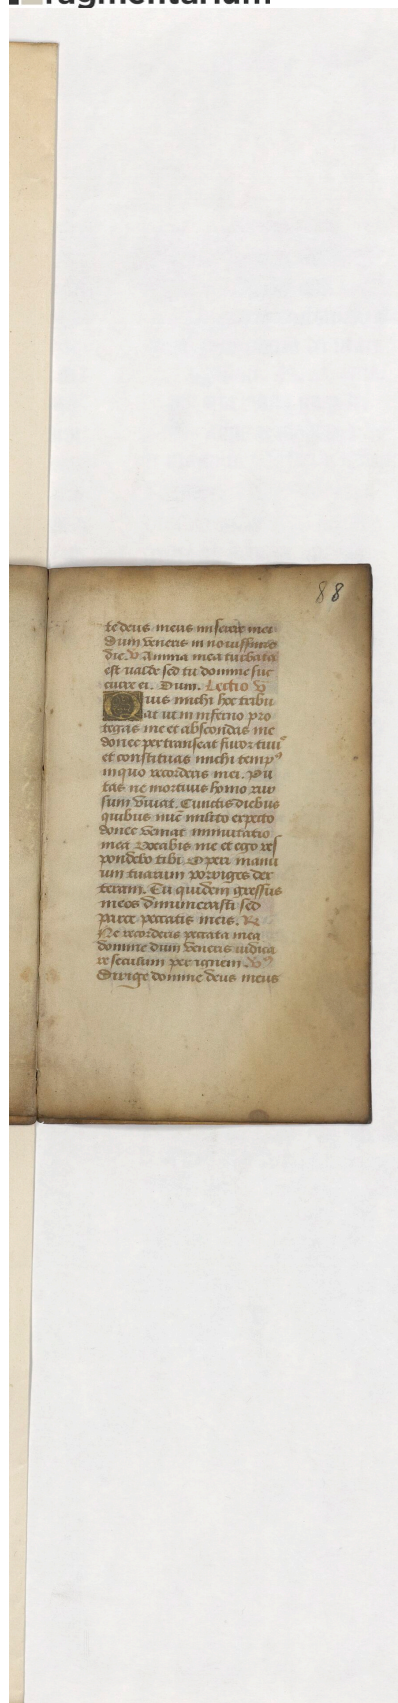 ragmentarium
88
te deus meus miserere mei
Dum veneris in novissimo
die. V Anima mea turbata
est valde sed tu domine suc
curre ei. Dum. Lectio V
Quis michi hoc tribu
at ut in inferno pro
tegas me et abscondas me
donec pertranseat furor tuus
et constituas michi tempus
in quo recorderis mei. Pu
tas ne mortuus homo rur
sum vivat. Cunctis diebus
quibus nunc milito expecto
donec veniat immutatio
mea Vocabis me et ego res
pondebo tibi. Operi manu
um tuarum porriges dex
teram. Tu quidem gressus
meos dinumerasti sed
parce peccatis meis. R
Ne recorderis peccata mea
domine dum veneris iudica
re seculum per ignem. V
Dirige domine deus meus